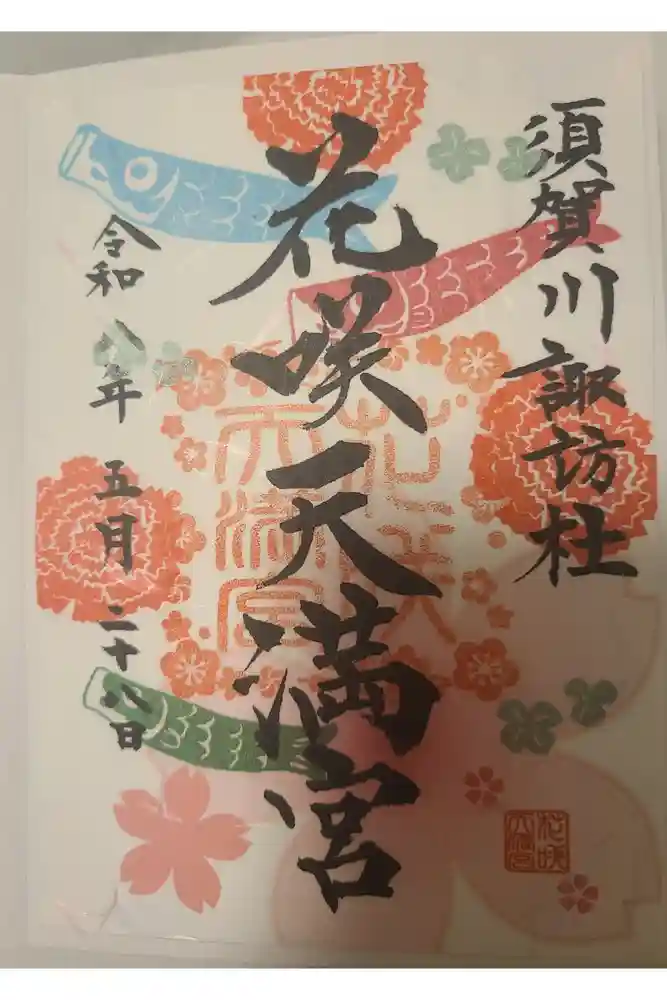 須賀川諏訪社
花咲天満宮
花咲
天満宮
令和八年五月二十八日
花咲
天満宮